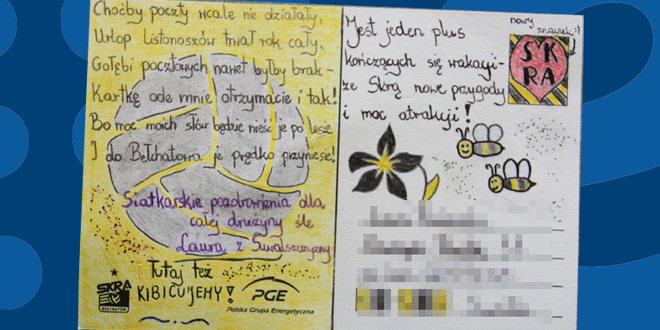 Choćby poczty wcale nie działały,
Urlop Listonoszów trwał rok cały,
Gołębi pocztowych nawet byłby brak -
Kartkę ode mnie otrzymacie i tak!
Bo moc moich słów będzie nieść je po lesie
I do Bełchatowa je prędko przyniesie!
Siatkarskie pozdrowienia dla
całej drużyny śle
Laura z Suwalszczyzny
Tutaj też
KIBICUJEMY!
SKRA
BEŁCHATÓW
PGE
Polska Grupa Energetyczna
Jest jeden plus
kończących się wakacji -
ze Skrą nowe przygody
i moc atrakcji!
nowy
znaczek :)
SK
RA